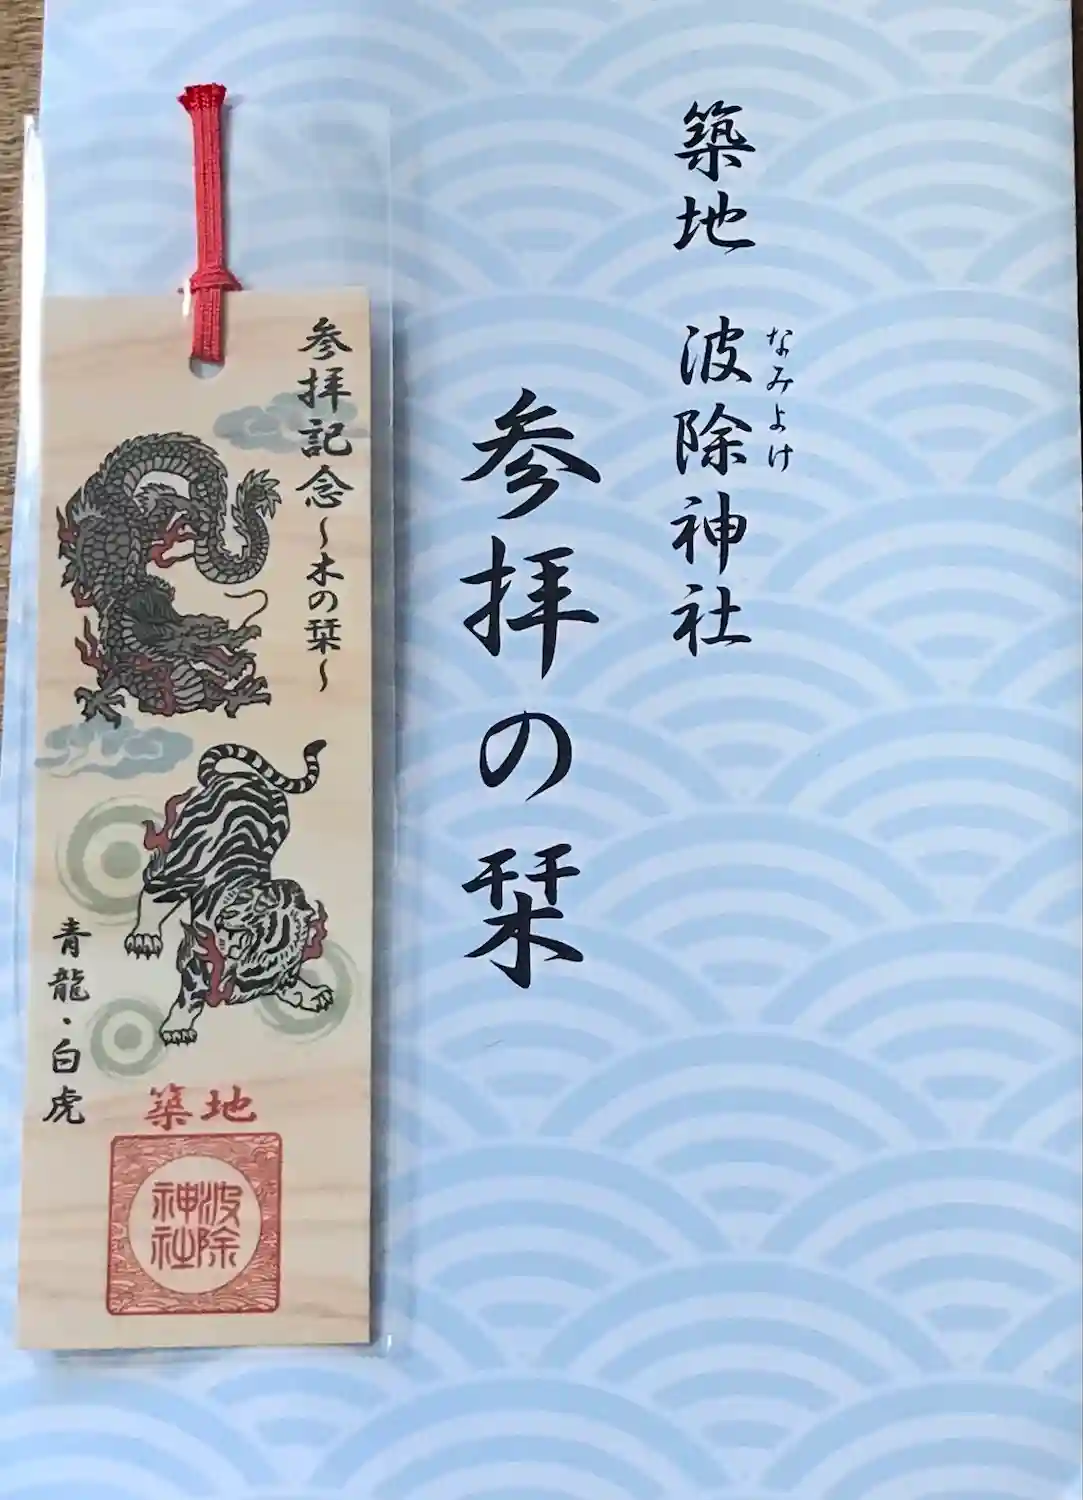 築地 波除神社
なみよけ
参拝の栞
参拝記念～木の栞～
青龍・白虎
築地
波除
神社